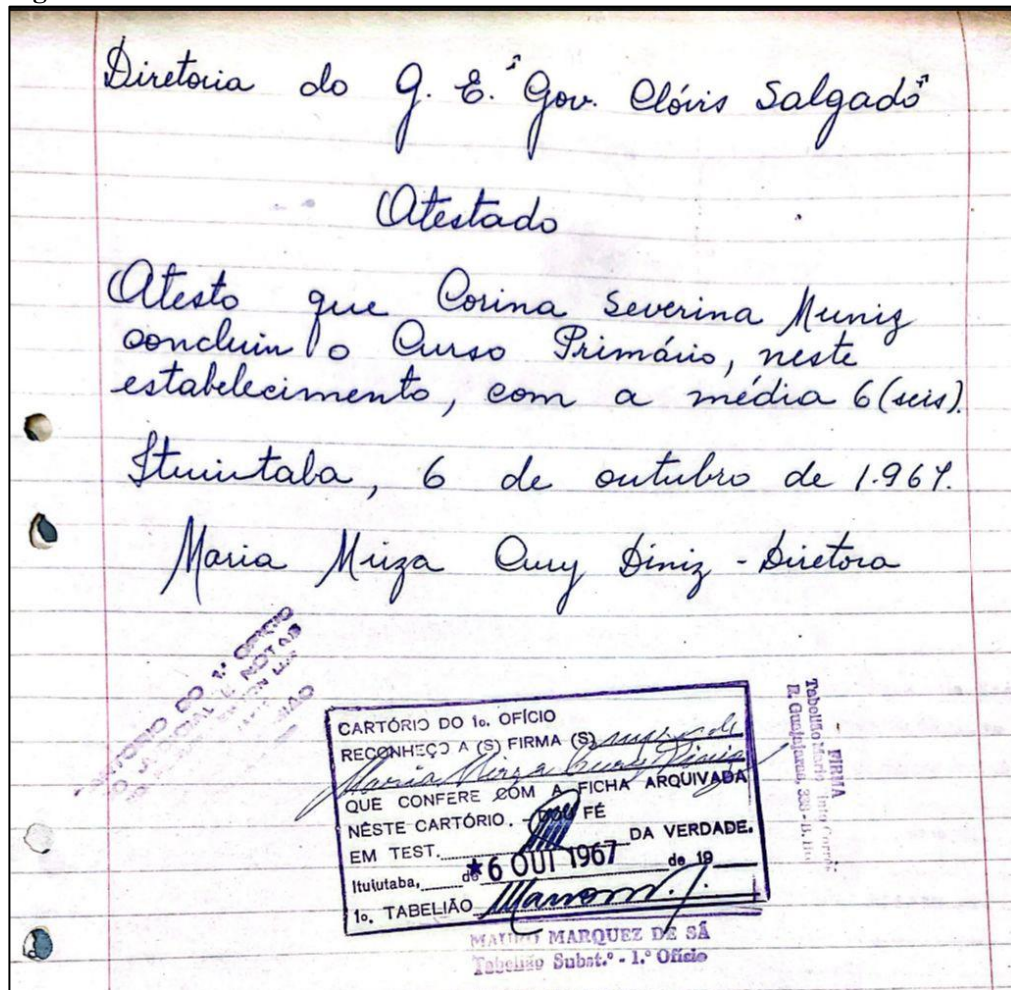 Diretoria do G. E. "Gov. Clóvis Salgado"
Atestado
Atesto que Corina Severina Muniz
concluiu o Curso Primário, neste
estabelecimento, com a média 6 (seis).
Ituiutaba, 6 de outubro de 1.967.
Maria Mirza Cury Diniz - Diretora
CARTÓRIO DO 1º OFÍCIO
JUDICIAL E NOTAS
CARTÓRIO DO 1o. OFÍCIO
RECONHEÇO A (S) FIRMA (S) supra de
Maria Mirza Cury Diniz
QUE CONFERE COM A FICHA ARQUIVADA
NÊSTE CARTÓRIO. - DOU FÉ
EM TEST. DA VERDADE.
Ituiutaba, de *6 OUT 1967 de 19
1o. TABELIÃO
MAURO MARQUEZ DE SÁ
Tabelião Subst.º - 1.º Ofício
FIRMA
Tabelião Mario
R. Guajajaras, 330 - B. Hte